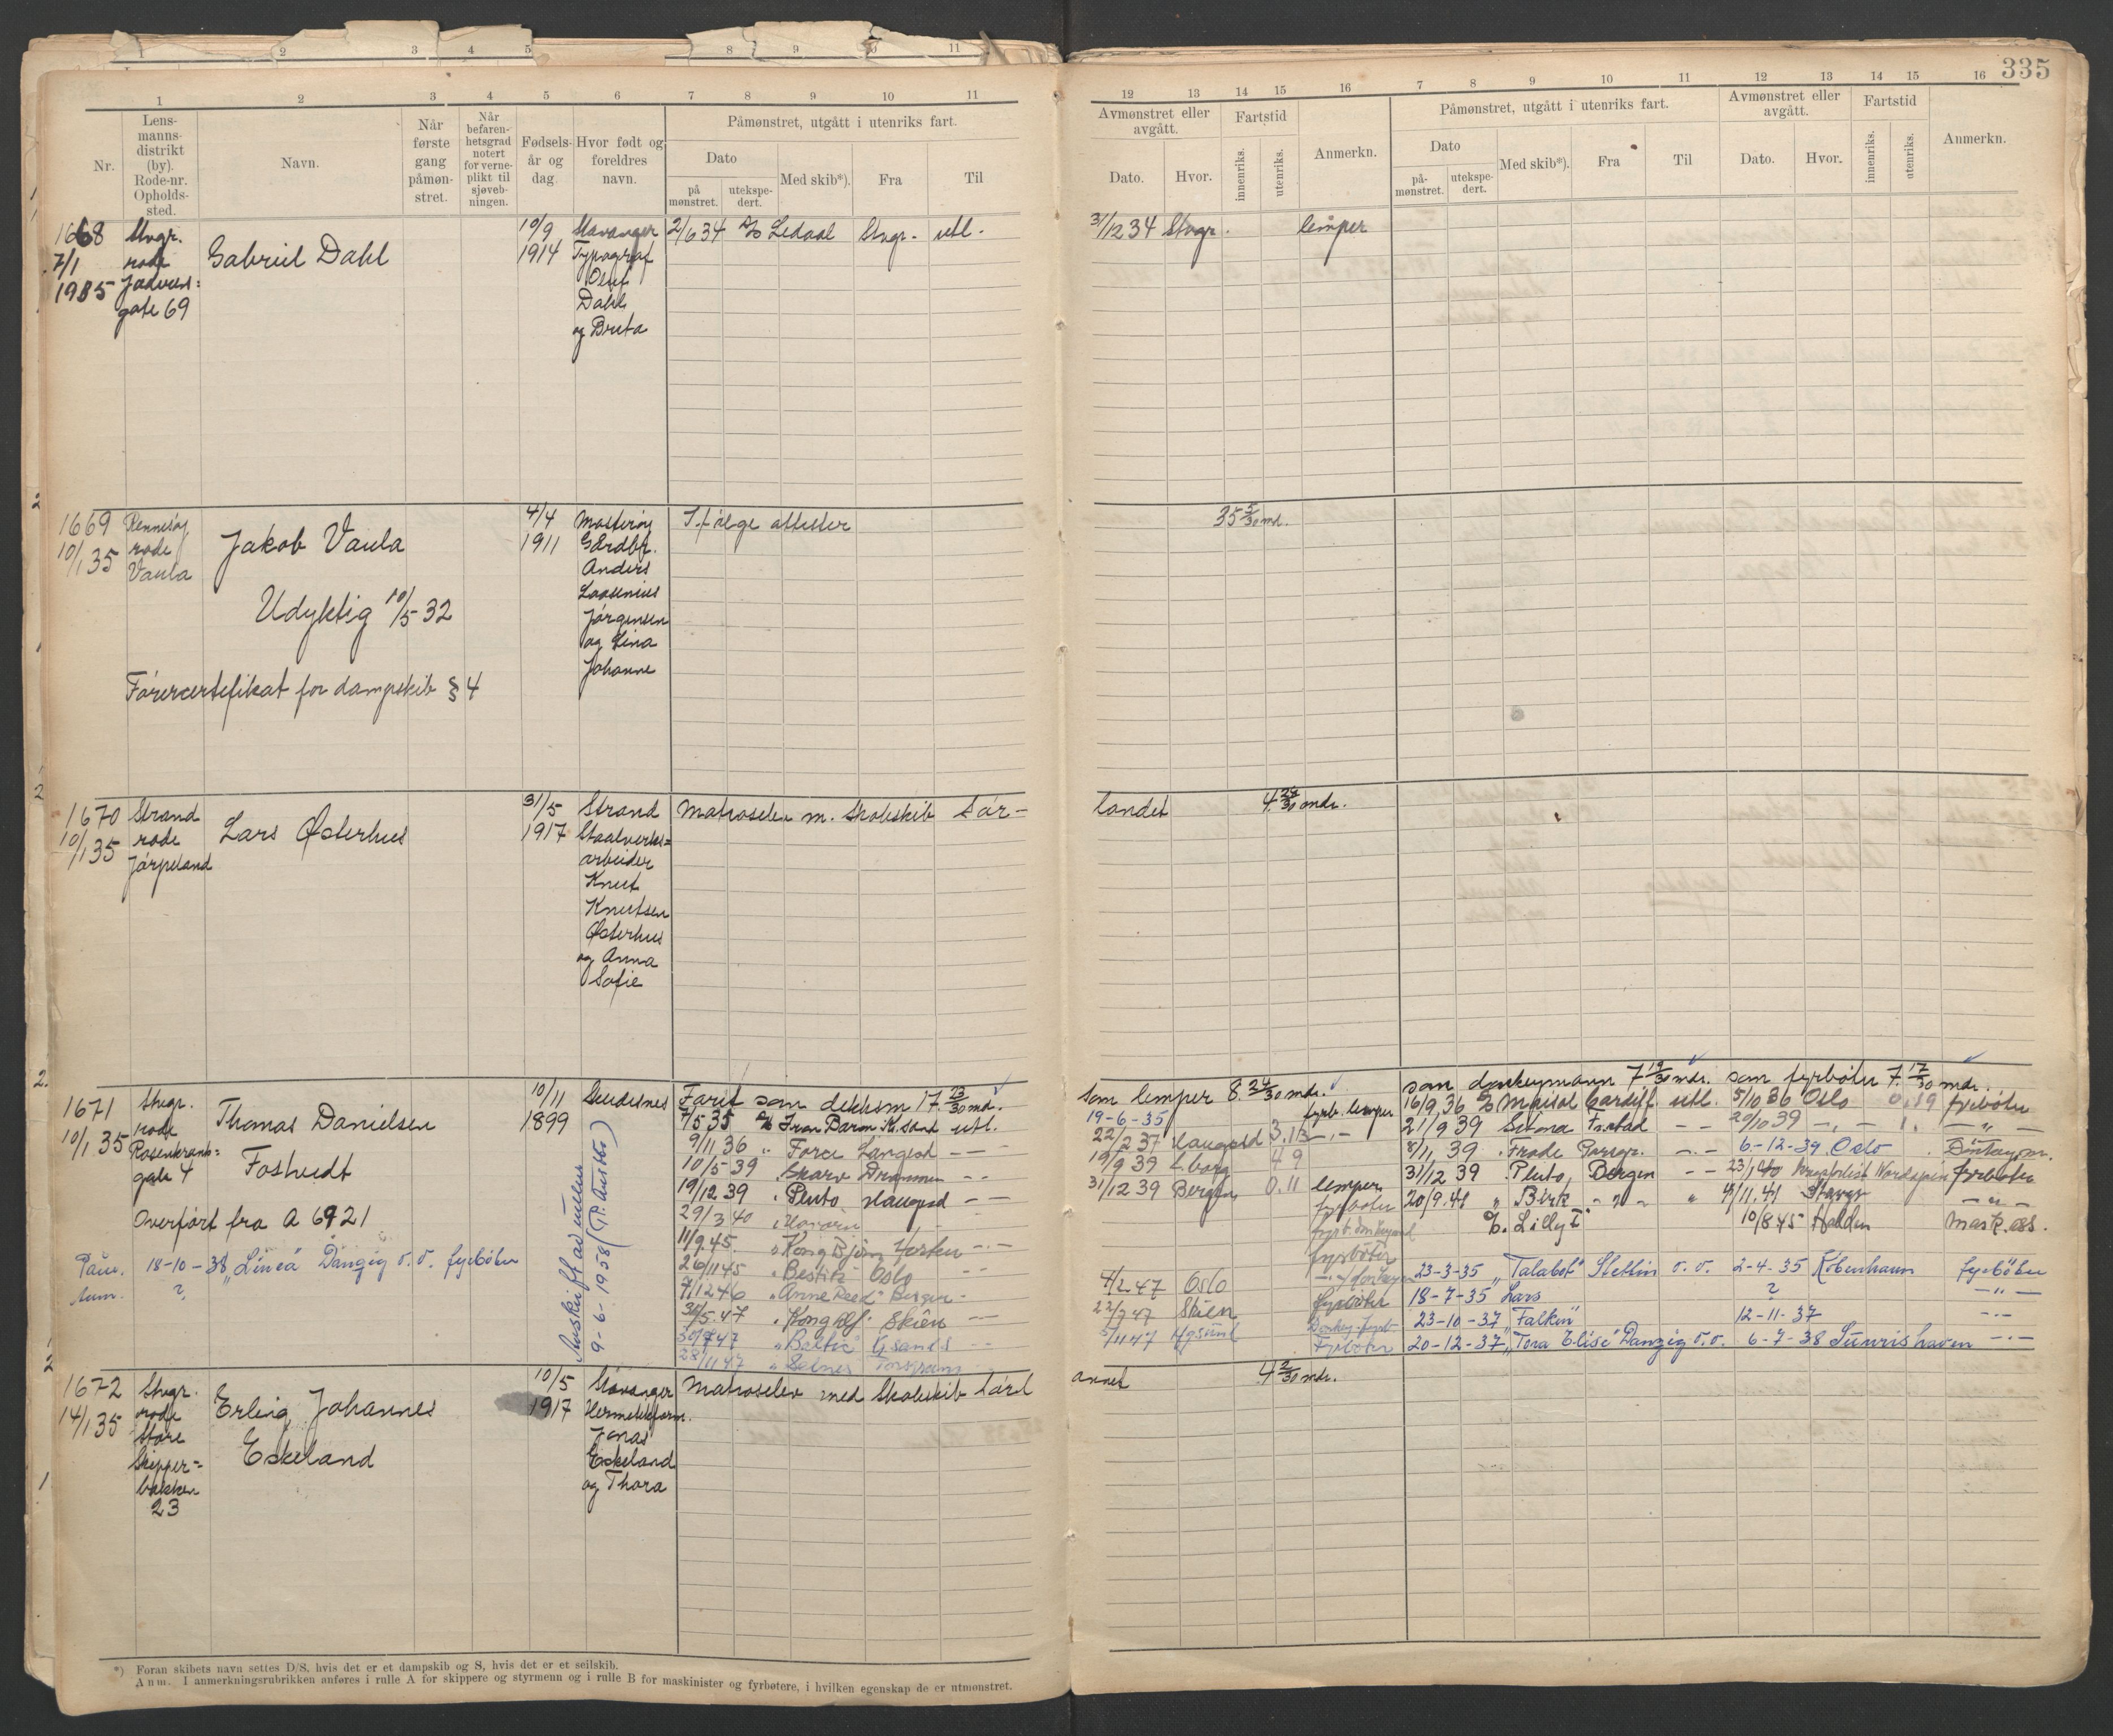 335
1 2 3 4 5 6 7 8 9 10 11
Nr.
Lens-
manns-
distrikt
(by).
Rode-nr.
Opholds-
sted.
Navn.
Når
første
gang
påmøn-
stret.
Når
befaren-
hetsgrad
notert
for verne-
plikt til
sjøveb-
ningen.
Fødsels-
år og
dag.
Hvor født og
foreldres
navn.
Påmønstret, utgått i utenriks fart.
Dato
på
mønstret.
utekspe-
dert.
Med skib*).
Fra
Til
12 13 14 15 16 7 8 9 10 11 12 13 14 15 16
Avmønstret eller
avgått.
Dato.
Hvor.
Fartstid
innenriks.
utenriks.
Anmerkn.
Påmønstret, utgått i utenriks fart.
Dato
på-
mønstret.
utekspe-
dert.
Med skib*).
Fra
Til
Avmønstret eller
avgått.
Dato.
Hvor.
Fartstid
innenriks.
utenriks.
Anmerkn.
1668
7/1
1935
Stvgr.
rode
gate 69
Gabriel Dahl
10/9
1914
Stavanger
Typograf
Oluf
Dahl
og Berta
2/6 34 Ledaal Stvgr. utl.
31/12 34 Stvgr. lemper
1669
10/1 35
Rennesøy
rode
Vaula
Jakob Vaula
Udyktig 10/5 32
Førercertifikat for dampskib § 4
4/4
1911
Mosterøy
Gårdbr.
Anders
Jørgensen
og Lina
Johanne
Ifølge attester
35 5/30 md.
1670
10/1 35
Strand
rode
Jørpeland
Lars Østerhus
31/5
1917
Strand
Staalverks=
arbeider
Knut
Knutsen
Østerhus
og Anna
Sofie
Matroselev m. Skoleskib Sør-
landet 4 24/30 mdr.
1671
10/1 35
Stvgr.
rode
Rosenkrants=
gate 4
Thomas Danielsen
Fostvedt
Overført fra A 6921
18-10-38 "Linea" Danzig o.v. fyrbøter
?
10/11
1899
Skudesnes
9-6-1958
Farit som dekksm 17. 23/30 md.
7/5 35 Iron Baron K.sand utl.
9/11 36 " Force Langesd — —
10/5 39 Skarv Drammen — —
19/12 39 " Pluto Haugesd — —
29/3 40
11/9 45. " Kong Bjørn
26/11 45 " Bestik Oslo — —
7/12 46 "Anne Reed" Bergen -
31/5.47 " Kong Alf Skien —
30/8 47 "Baltic" Kr.sand S — —
28/11 47 " Selnes Porsgrunn
Som lemper 8. 24/30 mdr.
19-6-35 fyrb. lemper
22/2 37 Haugesd 3.13 —"—
19/9 39 4 9
31/12 39 Bergen 0.11 lemper
fyrbøter
fyrbøter
4/2-47 Oslo
22/7 47 Skien fyrbøter
5/11 47 Donkey fyrb
Fyrbøter
som donkeymann 7 19/30 mdr. som fyrbøter 7. 17/30 mdr.
16/9 36 Cardiff utl. 5/10 36 Oslo 0.19 fyrbøter
21/9 39 Selma — — 20/10 39 —"— —"—
8/11 39 " Frode Porsgr. —"— 6-12-39 Oslo
31/12 39 " Pluto, Bergen — — 23/1 40 fyrbøter
20/9.41 " Birk " " 4/11.41 Stavgr —"—
Lilly I 10/8 45 Halden mask.ass.
23-3-35 "Talabot" Stettin o.v. 2-4-35 København fyrbøter
18-7-35 Lars ? —"—
23-10-37 "Falken" 12-11-37 —"—
20-12-37 "Tora Elise" Danzig o.v. 6-7-38 Sunrishaven —"—
1672
14/1 35
Stvgr.
rode
Store
Skipper=
bakken
23
Erling Johannes
Eskeland
10/5
1917
Stavanger
Jonas
Eskeland
og Thora
Matroselev med Skoleskib Sørl
annet 4 2/30 mdr.
*) Foran skibets navn settes D/S, hvis det er et dampskib og S, hvis det er et seilskib.
Anm. I anmerkningsrubrikken anføres i rulle A for skippere og styrmenn og i rulle B for maskinister og fyrbøtere, i hvilken egenskap de er utmønstret.